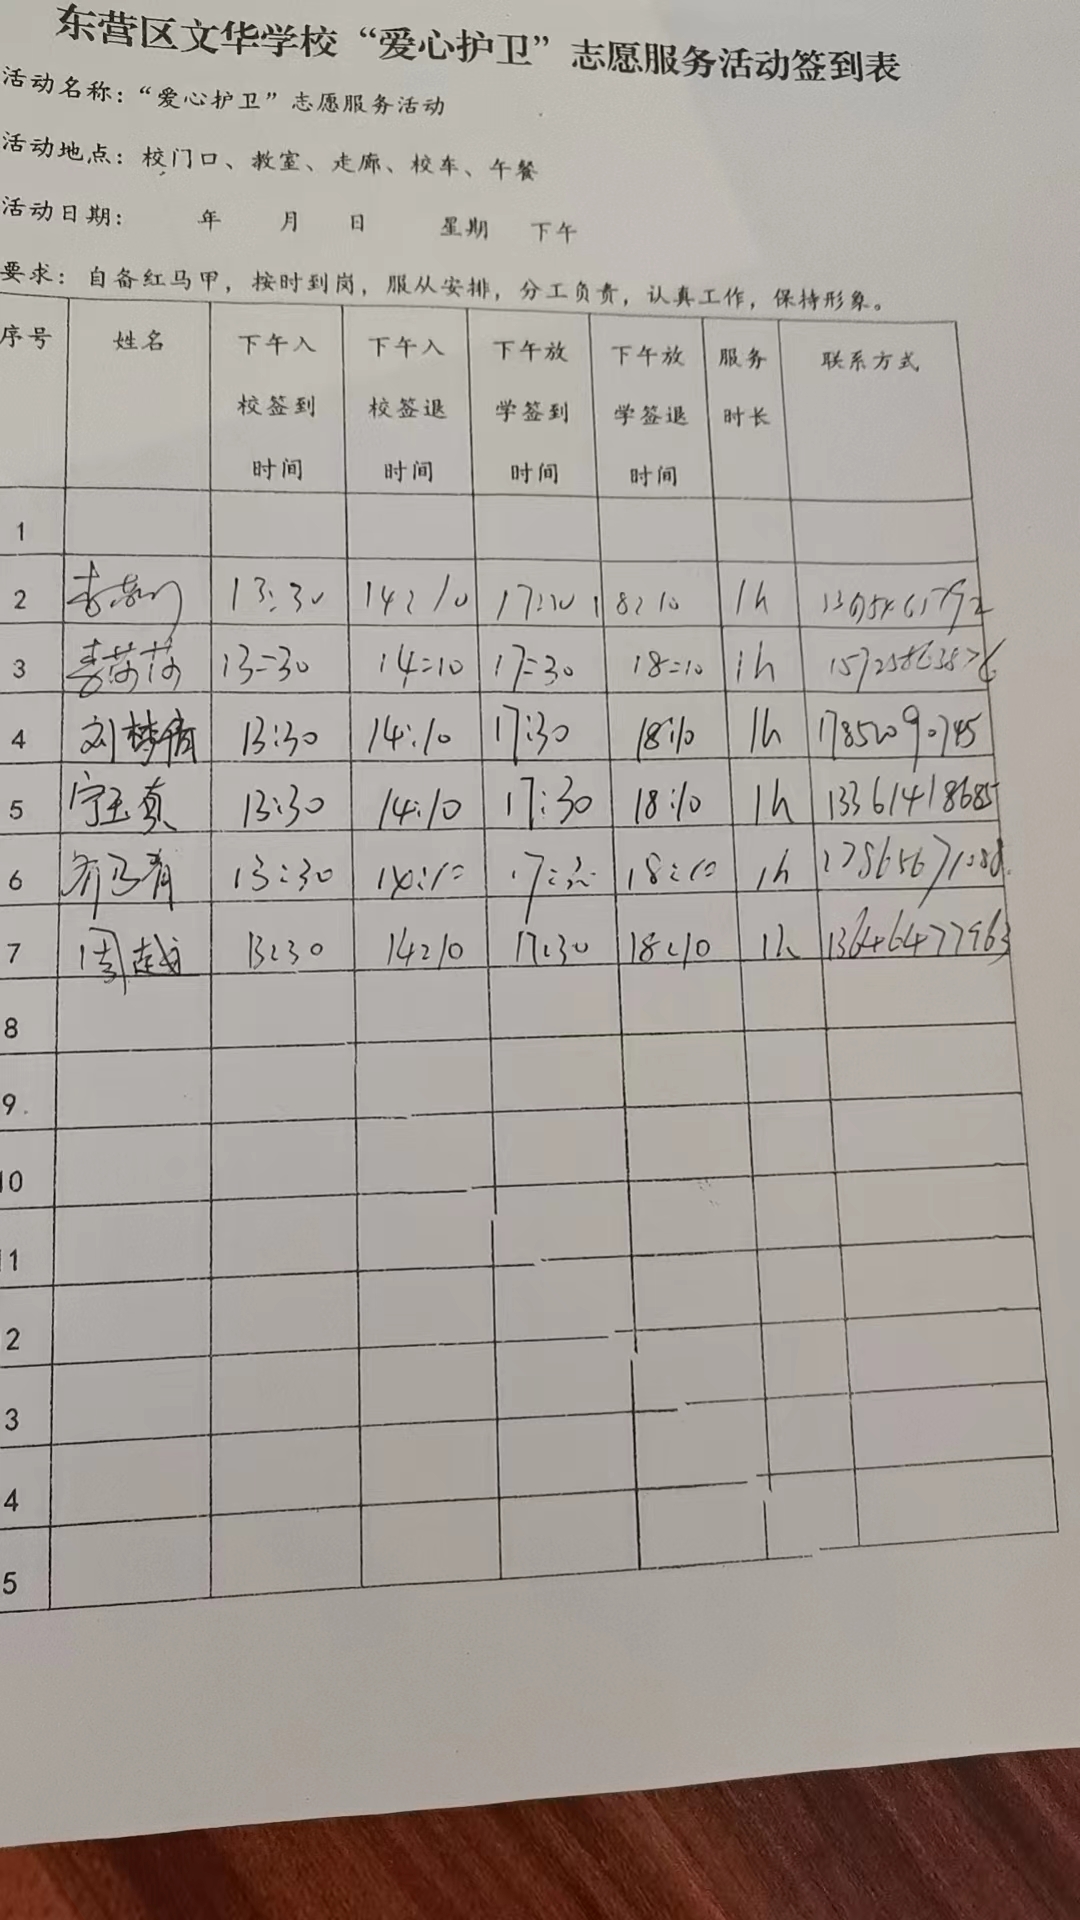 东营区文华学校“爱心护卫”志愿服务活动签到表
活动名称：“爱心护卫”志愿服务活动
活动地点：校门口、教室、走廊、校车、午餐
活动日期： 年 月 日 星期 下午
要求：自备红马甲，按时到岗，服从安排，分工负责，认真工作，保持形象。
序号 姓名 下午入校签到时间 下午入校签退时间 下午放学签到时间 下午放学签退时间 服务时长 联系方式
1
2 13:30 14:10 18:10 1h
3 李莎莎 13=30 14=10 17=30 18=10 1h
4 刘梦倩 13:30 14:10 17:30 18:10 1h
5 宁玉真 13:30 14:10 17:30 18:10 1h 13361418685
6 13:30 14:10 17:30 18:10 1h
7 周越 13:30 14:10 17:30 18:10 1h 13646477963
8
9
10
11
2
3
4
5